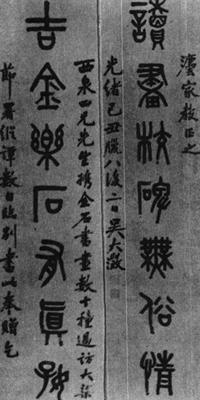 灋家教正之
讀書校碑無俗情
光緒己丑臘八後二日吳大澂
西泉四兄先生携金石書畫數十種過訪大梁
吉金樂石有真好
節署縱譚數日臨別書此奉贈乞